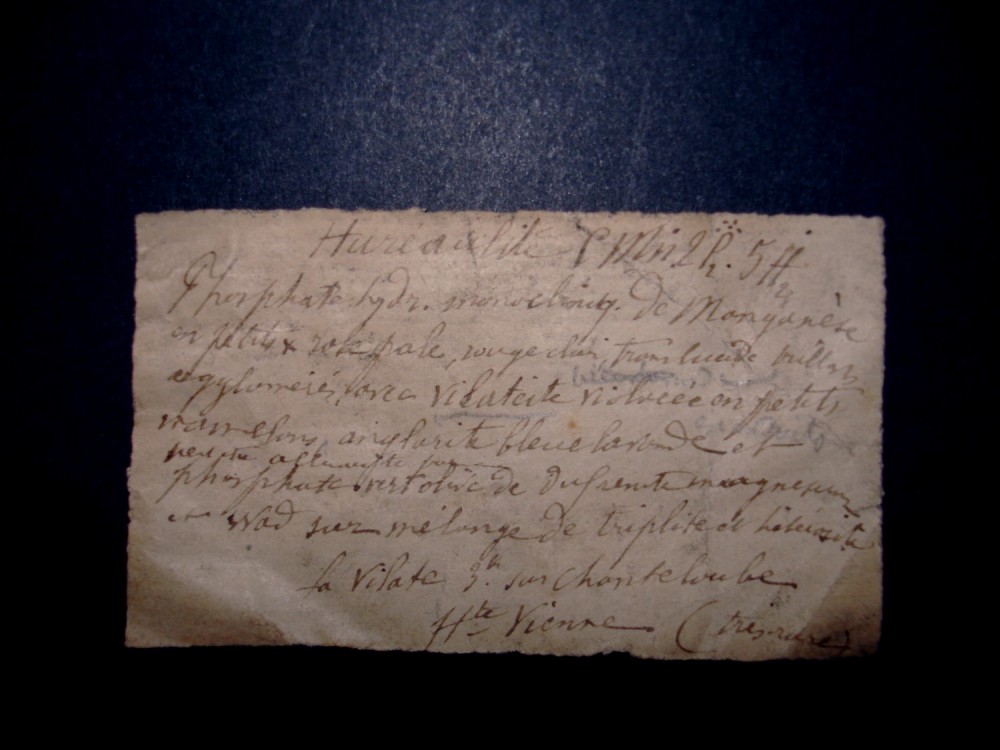 Huréaulite
Phosphate hydr. monocliniq. de Manganèse
en petits x rose pale, rouge clair, translucide
agglomérés, avec vilatéite violacée en petits
mamelons, anglarite bleue lavande et
phosphate vert olive de Dufrenite
et Wad sur mélange de triplite et hétérosite
la Vilate sur Chanteloube
Hte Vienne (très rare)